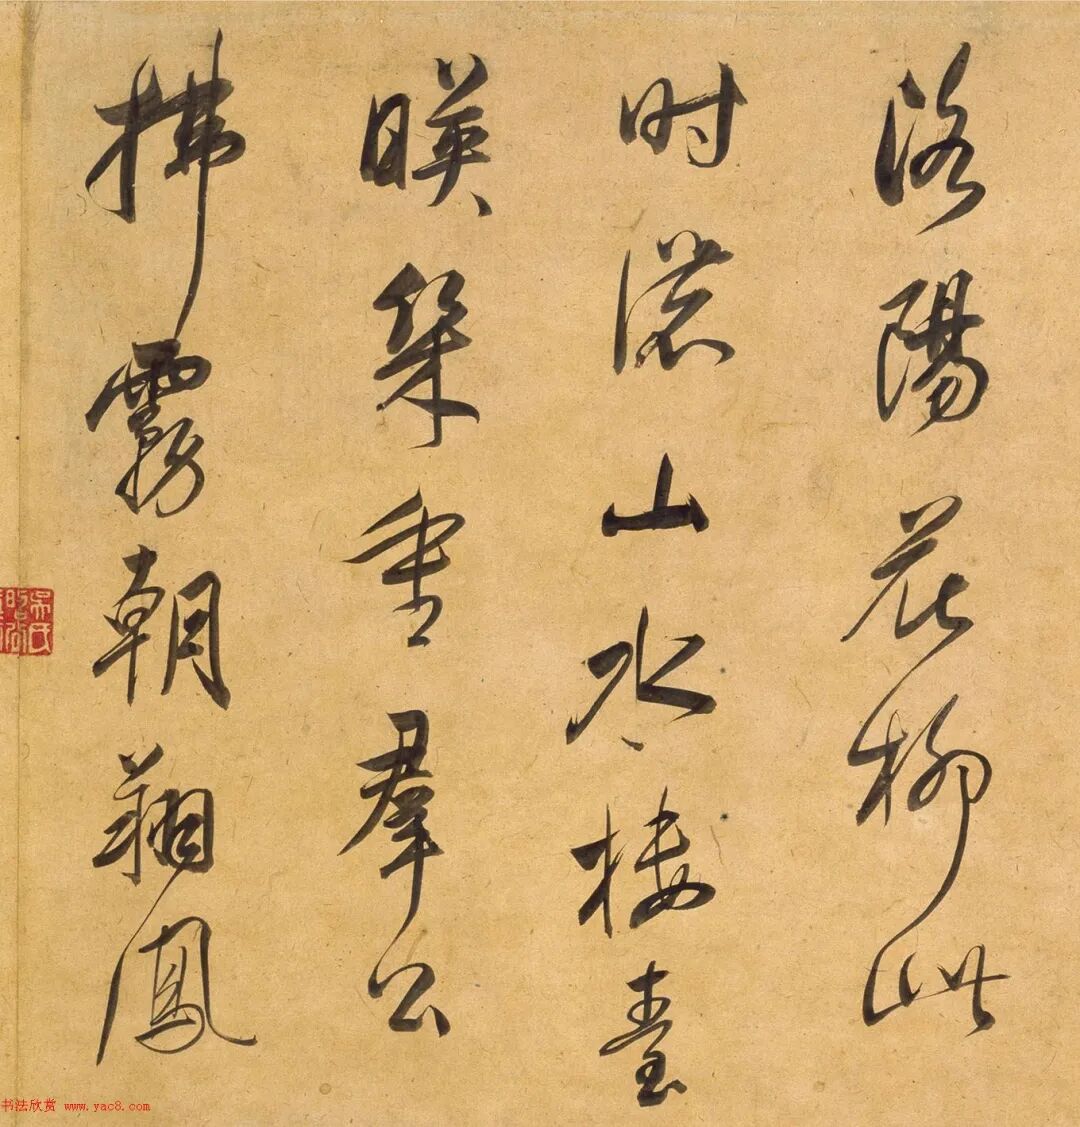 洛陽花柳此
时濃山水樓臺
暎幾重羣公
拂霧朝翔鳳
书法欣赏 www.yac8.com